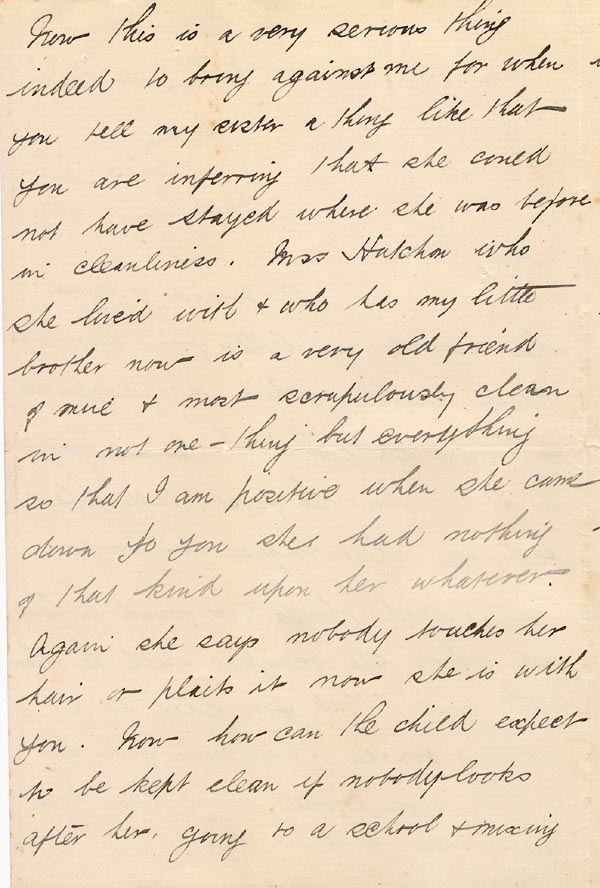 Now this is a very serious thing
indeed to bring against me for when
you tell my sister a thing like that
you are inferring that she could
not have stayed where she was before
in cleanliness. Mrs Hutchon who
she lived with & who has my little
brother now is a very old friend
of mine & most scrupulously clean
in not one-thing but everything
so that I am positive when she came
down to you she had nothing
of that kind upon her whatever.
Again she says nobody touches her
hair or plaits it now she is with
you. Now how can the child expect
to be kept clean if nobody looks
after her. going to a school & mixing